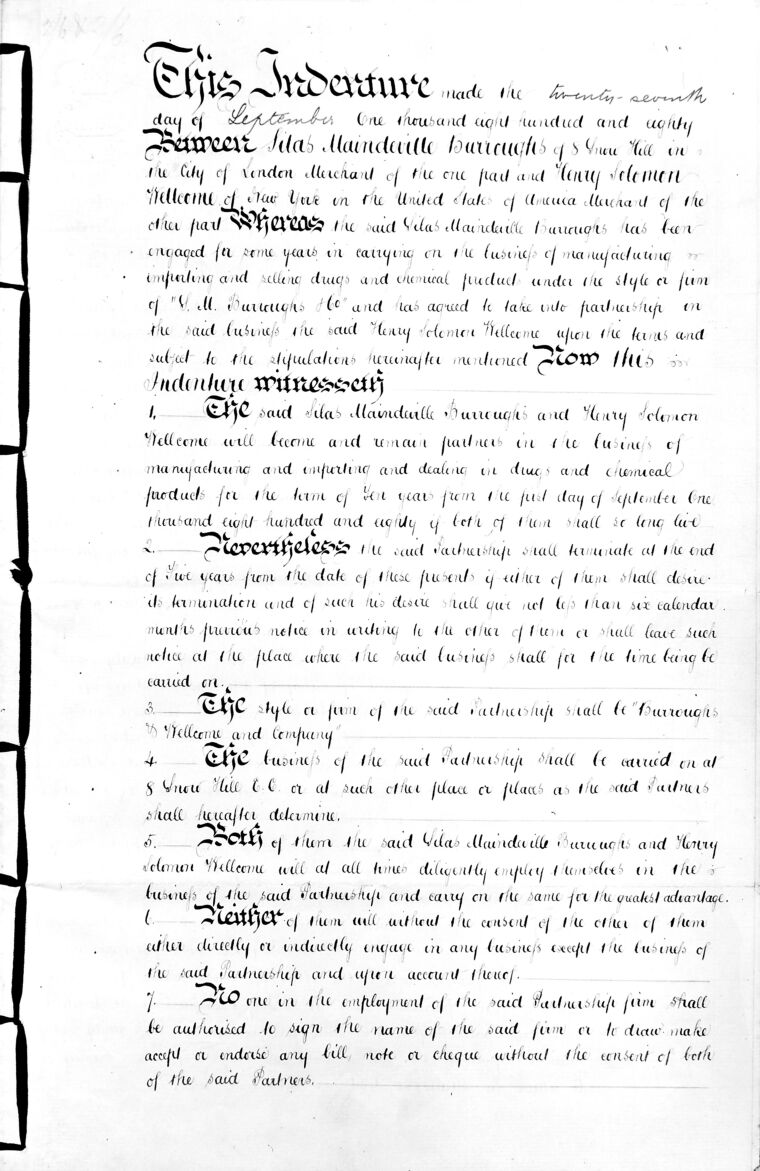 This Indenture made the twenty-seventh
day of September One thousand eight hundred and eighty
Between Silas Maindeville Burroughs of 8 Snow Hill in
the City of London Merchant of the one part and Henry Solomon
Wellcome of New York in the United States of America Merchant of the
other part Whereas the said Silas Maindeville Burroughs has been
engaged for some years in carrying on the business of manufacturing
importing and selling drugs and chemical products under the style or firm
of "S. M. Burroughs & Co" and has agreed to take into partnership in
the said business the said Henry Solomon Wellcome upon the terms and
subject to the stipulations hereinafter mentioned Now this
Indenture witnesseth
1. The said Silas Maindeville Burroughs and Henry Solomon
Wellcome will become and remain partners in the business of
manufacturing and importing and dealing in drugs and chemical
products for the term of Ten years from the first day of September One
thousand eight hundred and eighty if both of them shall so long live
2. Nevertheless the said Partnership shall terminate at the end
of Five years from the date of these presents if either of them shall desire
its termination and of such his desire shall give not less than six calendar
months previous notice in writing to the other of them or shall leave such
notice at the place where the said business shall for the time being be
carried on.
3. The style or firm of the said Partnership shall be "Burroughs
& Wellcome and Company"
4. The business of the said Partnership shall be carried on at
8 Snow Hill E.C. or at such other place or places as the said Partners
shall hereafter determine.
5. Both of them the said Silas Maindeville Burroughs and Henry
Solomon Wellcome will at all times diligently employ themselves in the
business of the said Partnership and carry on the same for the greatest advantage.
6. Neither of them will without the consent of the other of them
either directly or indirectly engage in any business except the business of
the said Partnership and upon account thereof.
7. No one in the employment of the said Partnership firm shall
be authorised to sign the name of the said firm or to draw make
accept or endorse any bill, note or cheque without the consent of both
of the said Partners.